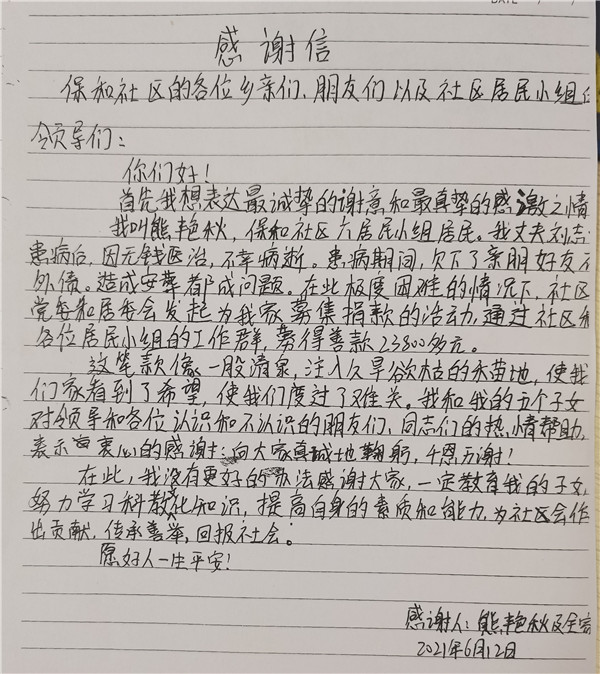 DATE
感谢信
保和社区的各位乡亲们、朋友们以及社区居民小组
领导们：
你们好！
首先我想表达最诚挚的谢意和最真挚的感激之情
我叫熊艳秋，保和社区六居民小组居民。我丈夫刘志
患病后，因无钱医治，不幸病逝。患病期间，欠下了亲朋好友
外债。造成安葬都成问题。在此极度困难的情况下，社区
党委和居委会发起为我家募集捐款的活动，通过社区和
各位居民小组的工作群，筹得善款23800多元。
这笔款像一股清泉，注入久旱欲枯的禾苗地，使我
们家看到了希望，使我们度过了难关。我和我的五个子女
对领导和各位认识和不认识的朋友们、同志们的热情帮助，
表示由衷心的感谢：向大家真诚地鞠躬，千恩万谢！
在此，我没有更好的办法感谢大家，一定教育我的子女，
努力学习科教文化知识，提高自身的素质和能力，为社区会作
出贡献，传承善举，回报社会。
愿好人一生平安！
感谢人：熊艳秋及全家
2021年6月12日